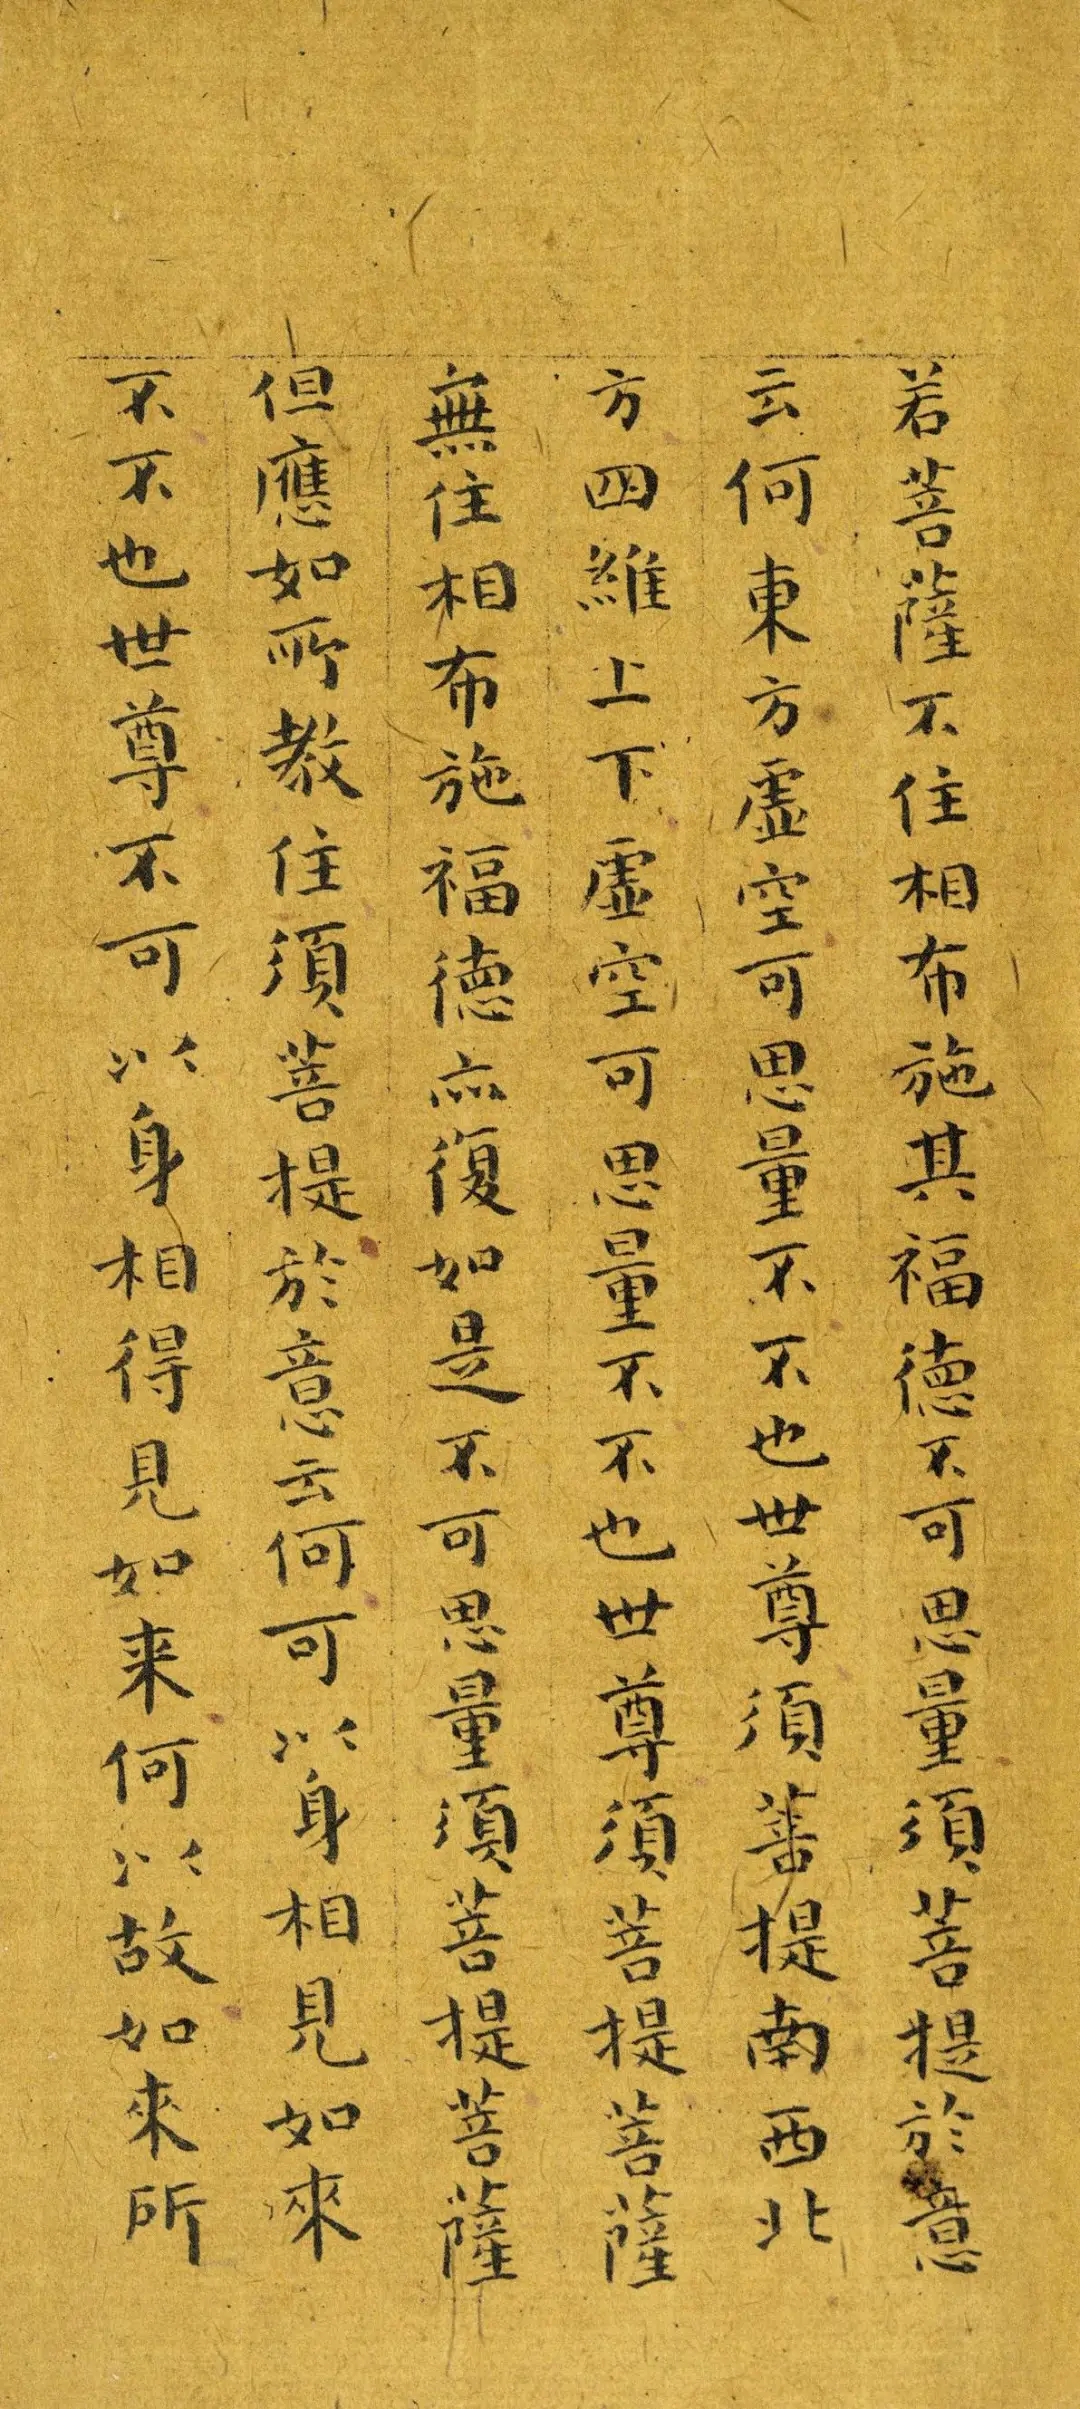 若菩薩不住相布施其福德不可思量須菩提於意
云何東方虛空可思量不不也世尊須菩提南西北
方四維上下虛空可思量不不也世尊須菩提菩薩
無住相布施福德亦復如是不可思量須菩提菩薩
但應如所教住須菩提於意云何可以身相見如來
不不也世尊不可以身相得見如来何以故如來所